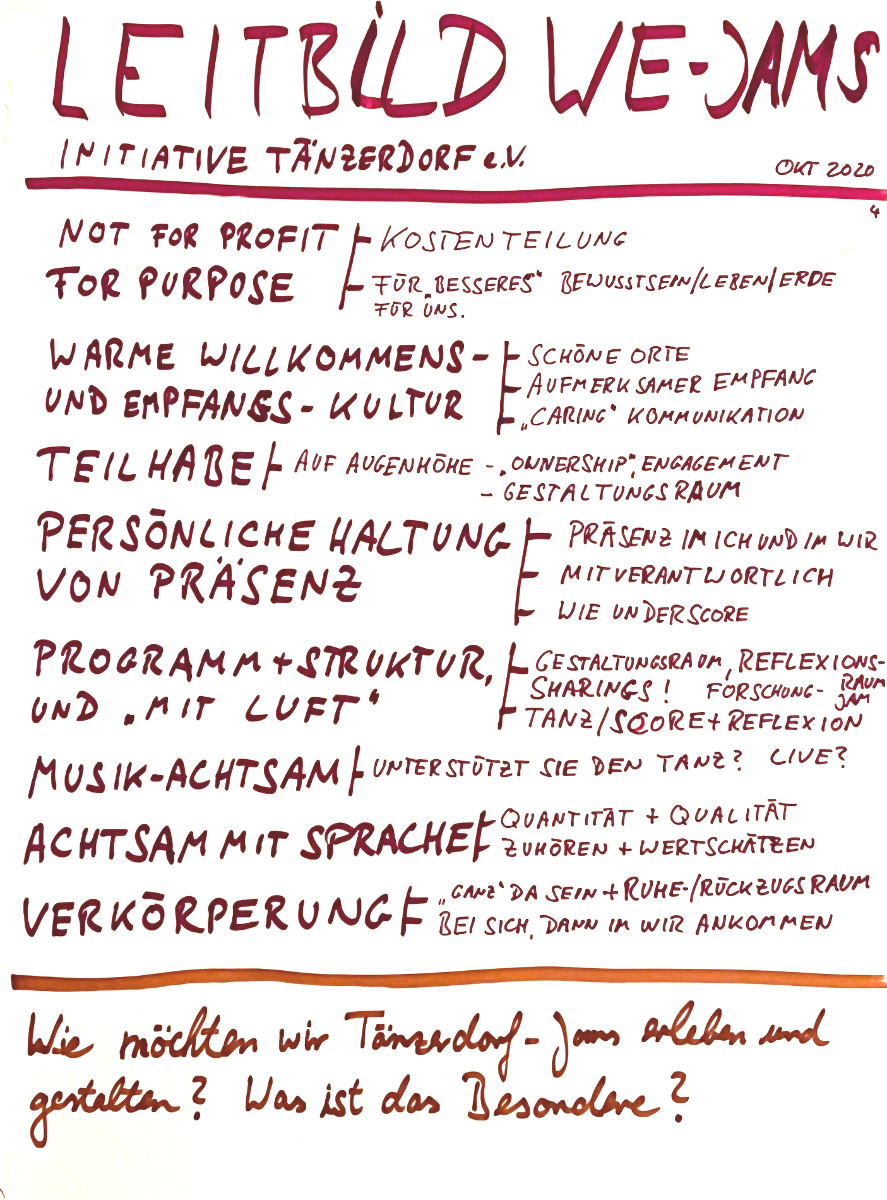 LEITBILD WE-JAMS
INITIATIVE TÄNZERDORF e.V.
OKT 2020
4
NOT FOR PROFIT
KOSTENTEILUNG
FOR PURPOSE
FÜR „BESSERES“ BEWUSSTSEIN/LEBEN/ERDE
FÜR UNS.
WARME WILLKOMMENS-
UND EMPFANGS-KULTUR
SCHÖNE ORTE
AUFMERKSAMER EMPFANG
„CARING“ KOMMUNIKATION
TEILHABE
AUF AUGENHÖHE - „OWNERSHIP“, ENGAGEMENT
- GESTALTUNGSRAUM
PERSÖNLICHE HALTUNG
VON PRÄSENZ
PRÄSENZ IM ICH UND IM WIR
MITVERANTWORTLICH
WIE UNDERSCORE
PROGRAMM + STRUKTUR,
UND „MIT LUFT“
GESTALTUNGSRAUM, REFLEXIONS-
RAUM
SHARINGS! FORSCHUNG-
JAM
TANZ/SCORE + REFLEXION
MUSIK-ACHTSAM
UNTERSTÜTZT SIE DEN TANZ? LIVE?
ACHTSAM MIT SPRACHE
QUANTITÄT + QUALITÄT
ZUHÖREN + WERTSCHÄTZEN
VERKÖRPERUNG
„GANZ“ DA SEIN + RUHE-/RÜCKZUGSRAUM
BEI SICH, DANN IM WIR ANKOMMEN
Wie möchten wir Tänzerdorf-Jams erleben und
gestalten? Was ist das Besondere?